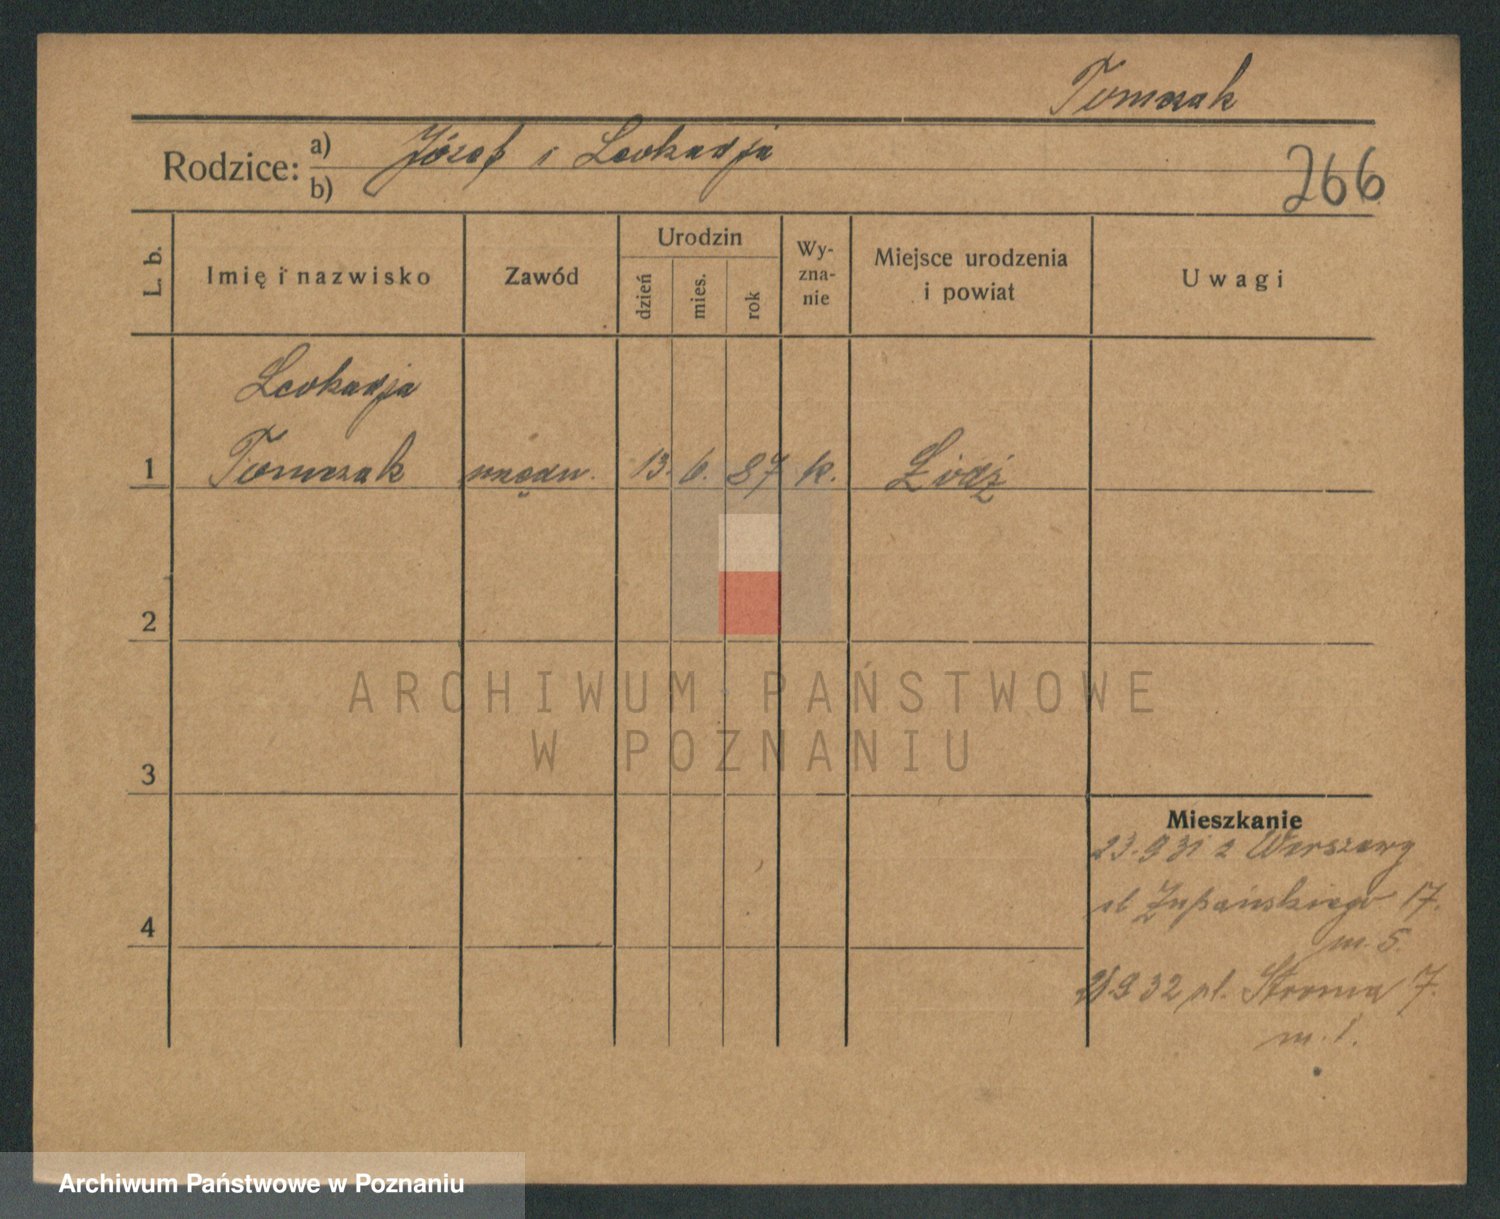 Tomczak
Rodzice: a) Józef i Leokadja
b)
266
L. b.
Imię i nazwisko
Zawód
Urodzin
dzień
mies.
rok
Wy-
zna-
nie
Miejsce urodzenia
i powiat
Uwagi
Leokadja
1 Tomczak urzędn. 13. 6. 87 k. Łódź
2
3
4
Mieszkanie
23.9 31 z Warszawy
ul Żupańskiego 17.
m. 5.
9 32 ul. Stroma 7.
m. 1.
ARCHIWUM PAŃSTWOWE
W POZNANIU
Archiwum Państwowe w Poznaniu